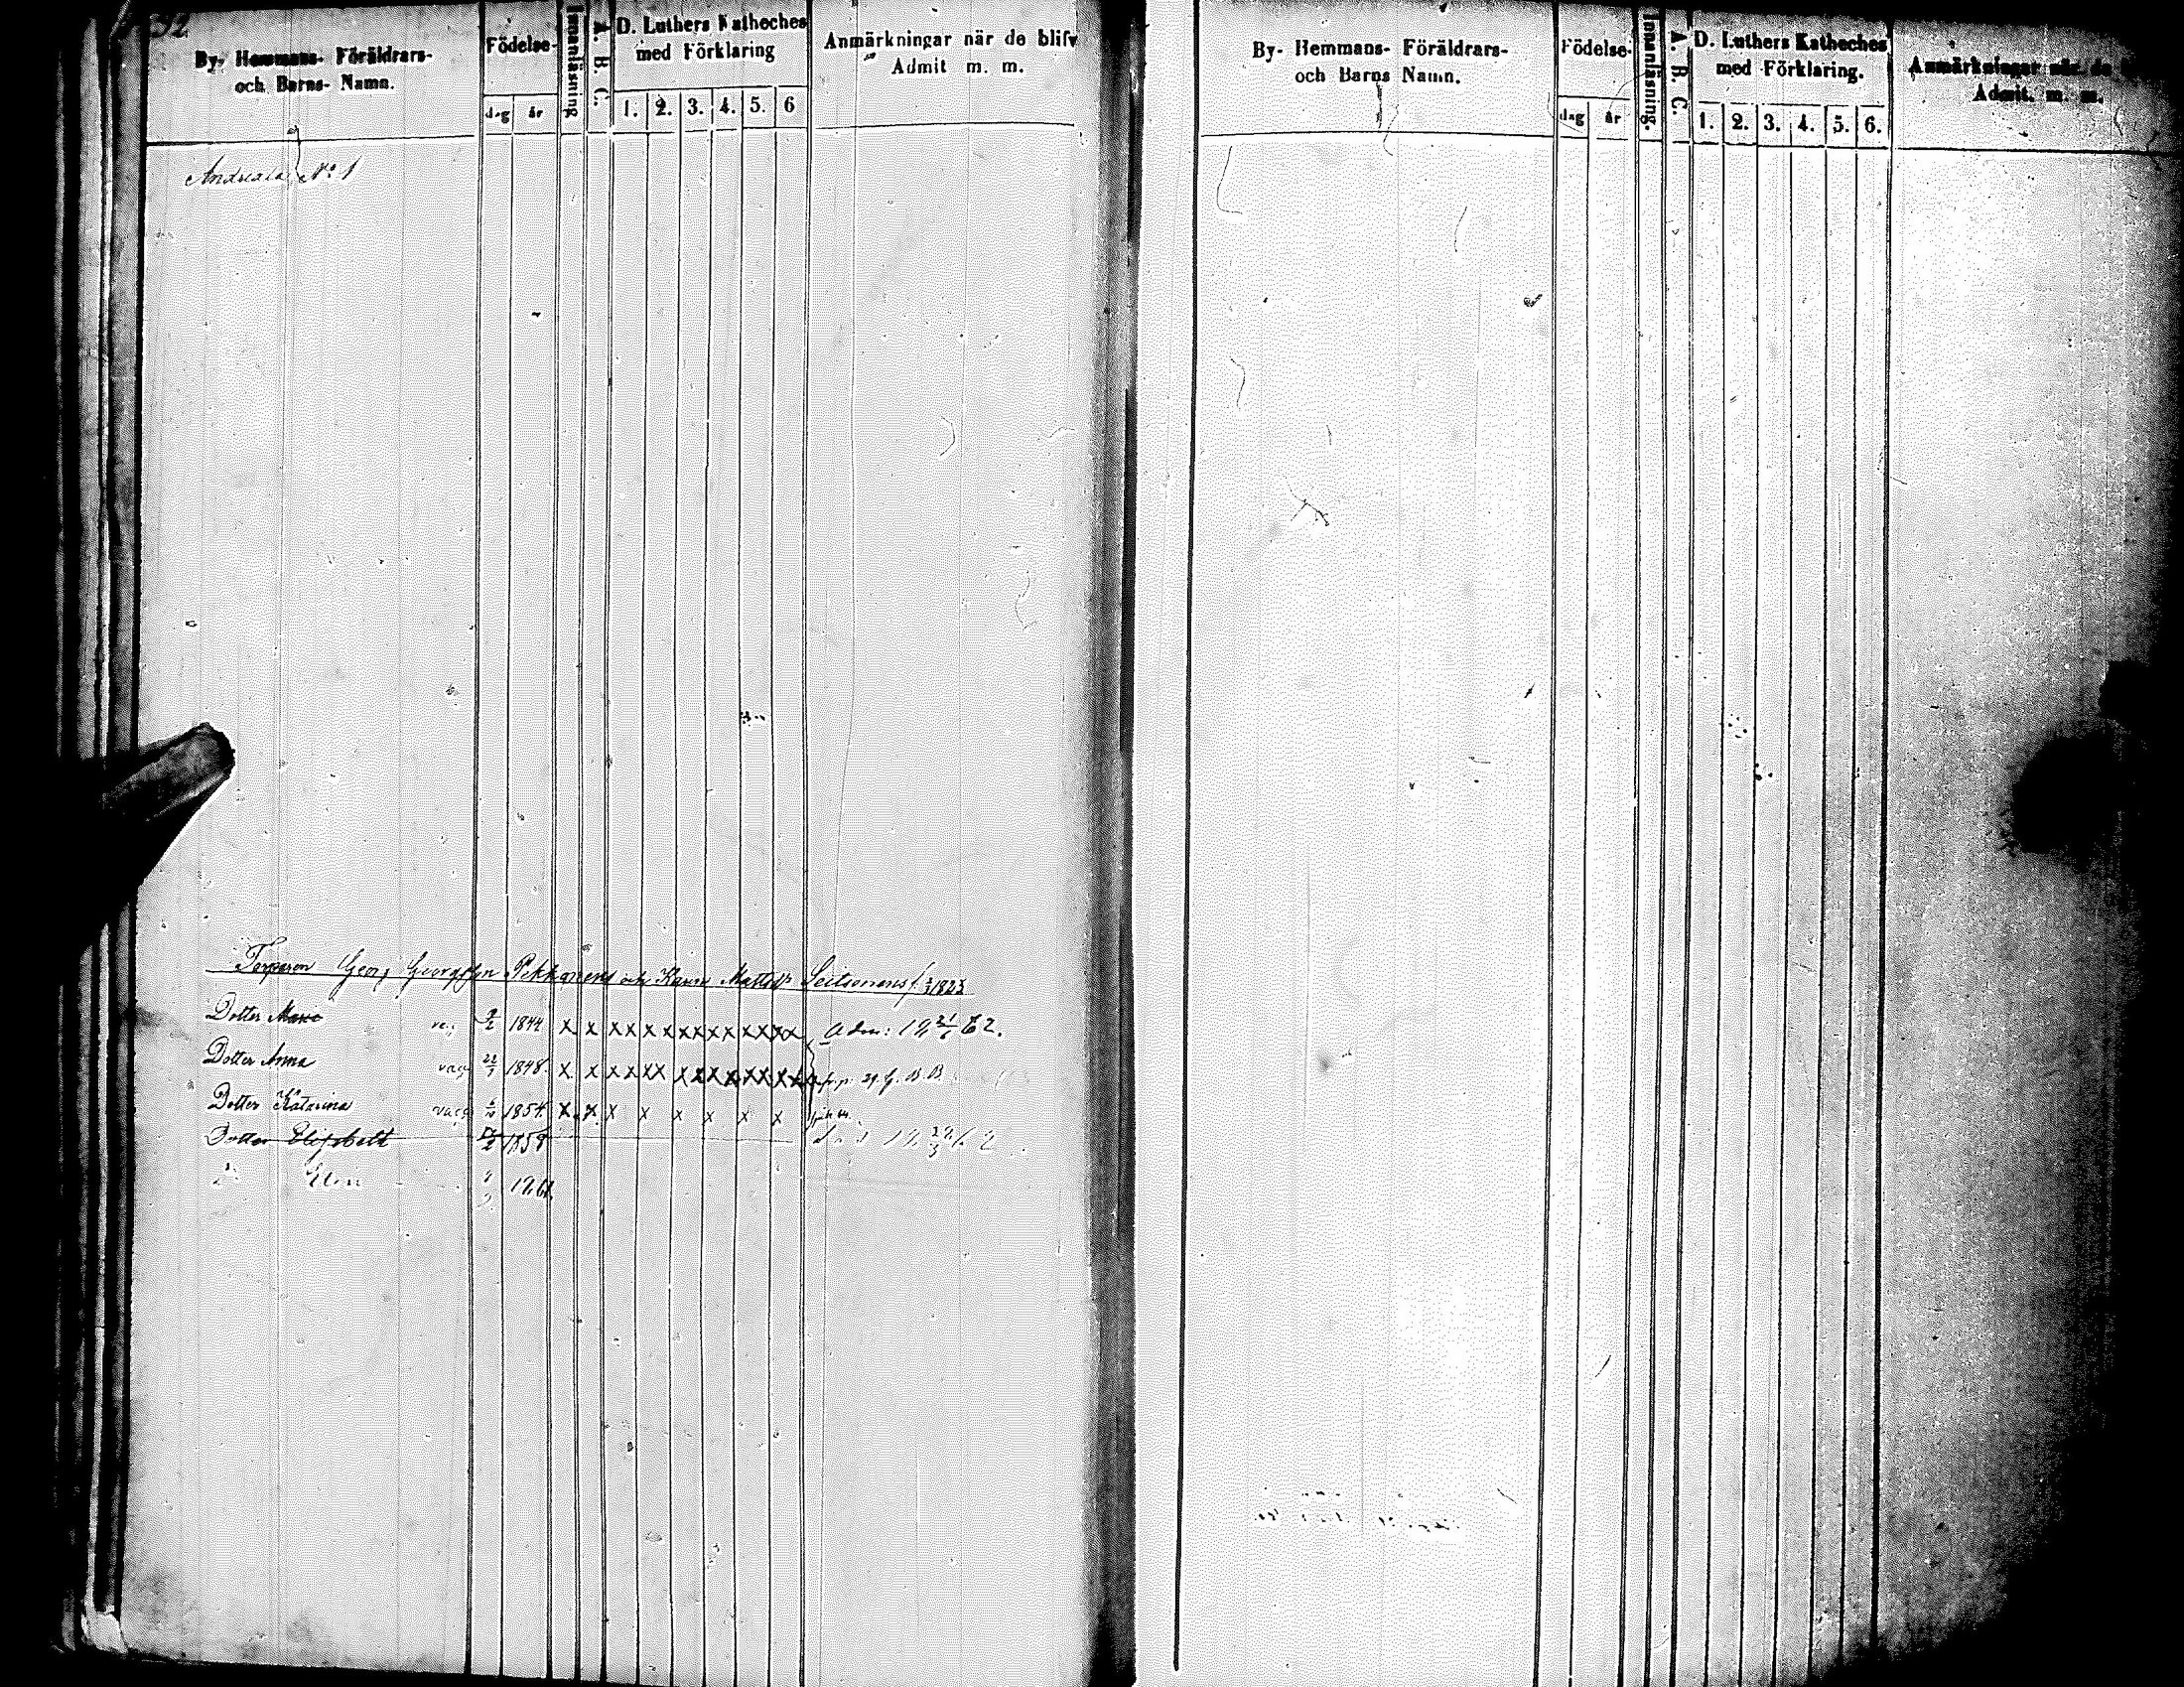 By- Hemmans- Föräldrars-
och Barns- Namn.
Födelse-
dag år
Innanläsning
A. B. C.
D. Luthers Katheches
med Förklaring
1. 2. 3. 4. 5. 6
Anmärkningar när de blifv
Admit m. m.
Andreala No 1
Torparen Georg Georgsson Pekkarinens och Karin Mattsdr Seitsonens f. 1823
Dotter Maria 1844 x x x x x x x x x x x x x x Adm: 18 21/6 62.
Dotter Anna vacc 22/7 1848. x x x x x x x x x x x x x x
Dotter Katarina vacc 1854. x x x x x x x x
Dotter Elisabeth 1858
Elin 1861.
By- Hemmans- Föräldrars-
och Barns Namn.
Födelse-
dag år
Innanläsning.
A B. C.
D. Luthers Katheches
med Förklaring.
1. 2. 3. 4. 5. 6.
Anmärkningar när de
Admit. m. m.